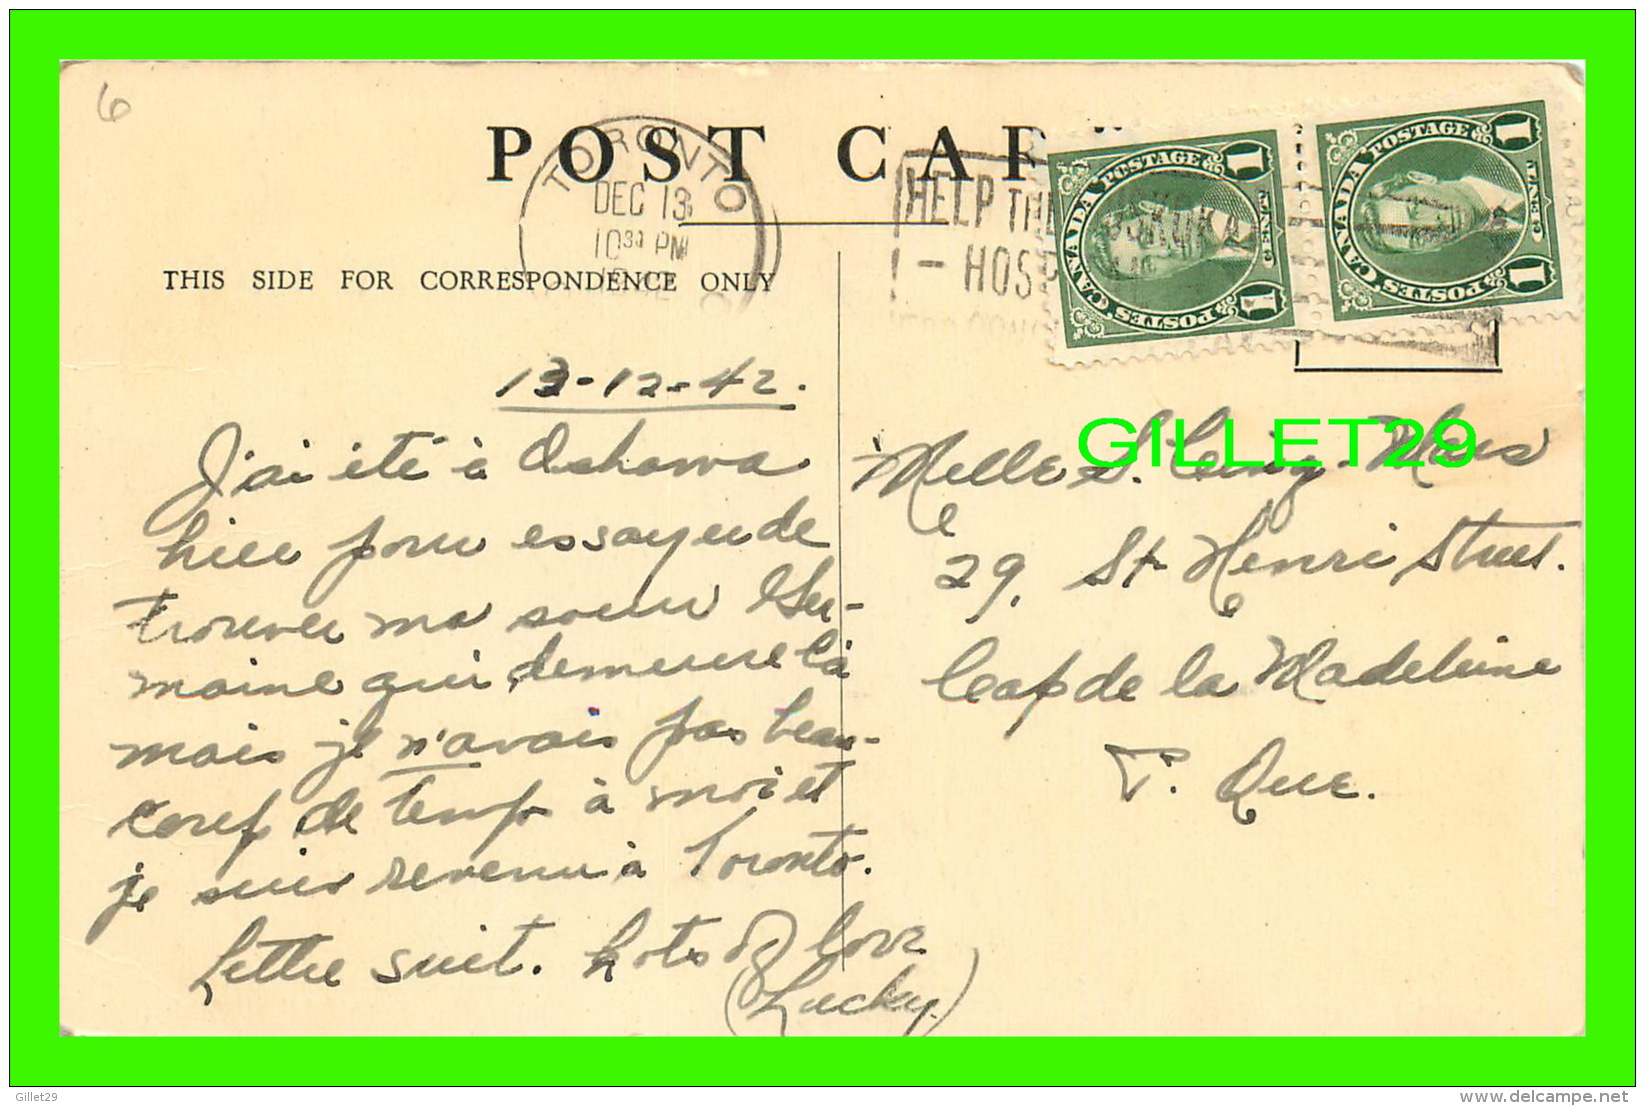 6
POST CAR
TORONTO
DEC 13
10 30 PM
HELP THE
- HOS
CANADA POSTAGE
POSTES
1
1
CANADA POSTAGE
POSTES
1
1
THIS SIDE FOR CORRESPONDENCE ONLY
13-12-42.
J'ai été à Oshawa
hier pour essayer de
trouver ma soeur Ger-
maine qui demeure là
mais je n'avais pas beau-
coup de temps à moi et
je suis revenu à Toronto.
Lettre suit. Lots of love
(Lucky)
GILLET29
Melle S. Cinq-Mars
29, St Henri Street.
Cap de la Madeleine
P. Que.
Gillet29
www.delcampe.net